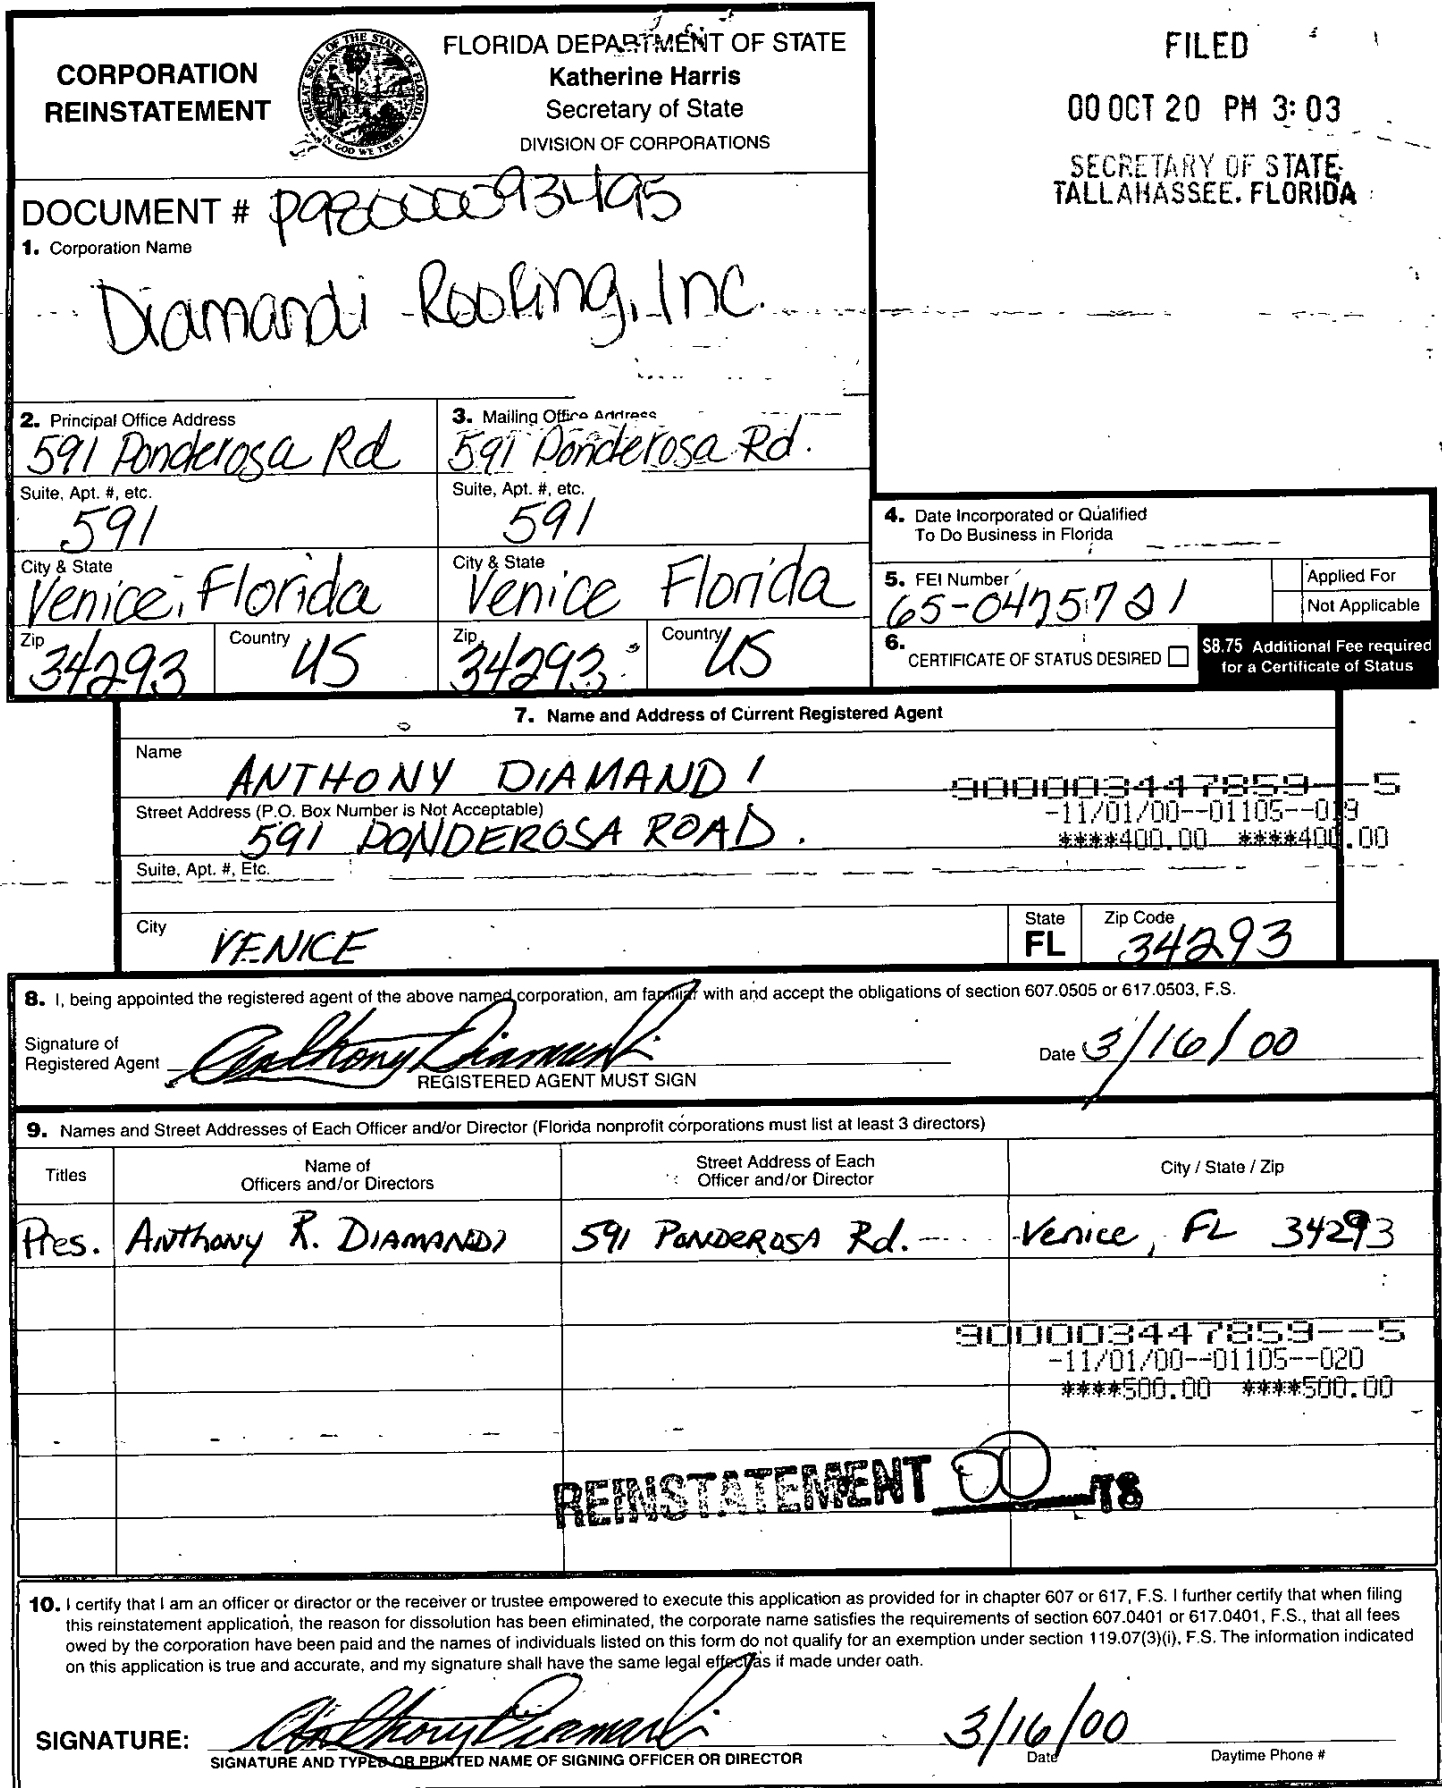 CORPORATION
REINSTATEMENT
FLORIDA DEPARTMENT OF STATE
Katherine Harris
Secretary of State
DIVISION OF CORPORATIONS
FILED
00 OCT 20 PM 3:03
SECRETARY OF STATE
TALLAHASSEE, FLORIDA
DOCUMENT # P98000093495
1. Corporation Name
Diamandi Roofing, Inc.
2. Principal Office Address
591 Ponderosa Rd
3. Mailing Office Address
591 Ponderosa Rd.
Suite, Apt. #, etc.
591
Suite, Apt. #, etc.
591
City & State
Venice, Florida
City & State
Venice Florida
Zip
34293
Country
US
Zip
34293
Country
US
4. Date Incorporated or Qualified
To Do Business in Florida
5. FEI Number
65-0475721
Applied For
Not Applicable
6.
CERTIFICATE OF STATUS DESIRED
$8.75 Additional Fee required
for a Certificate of Status
7. Name and Address of Current Registered Agent
Name
ANTHONY DIAMANDI
900003447859--5
-11/01/00--01105--019
****400.00 ****400.00
Street Address (P.O. Box Number is Not Acceptable)
591 PONDEROSA ROAD.
Suite, Apt. #, Etc.
City
VENICE
State
FL
Zip Code
34293
8. I, being appointed the registered agent of the above named corporation, am familiar with and accept the obligations of section 607.0505 or 617.0503, F.S.
Signature of
Registered Agent
Anthony Diamandi
REGISTERED AGENT MUST SIGN
Date 3/16/00
9. Names and Street Addresses of Each Officer and/or Director (Florida nonprofit corporations must list at least 3 directors)
Titles
Name of
Officers and/or Directors
Street Address of Each
Officer and/or Director
City / State / Zip
Pres. Anthony R. DIAMANDI 591 PONDEROSA Rd. Venice, FL 34293
900003447859--5
-11/01/00--01105--020
****500.00 ****500.00
REINSTATEMENT 00 TS
10. I certify that I am an officer or director or the receiver or trustee empowered to execute this application as provided for in chapter 607 or 617, F.S. I further certify that when filing
this reinstatement application, the reason for dissolution has been eliminated, the corporate name satisfies the requirements of section 607.0401 or 617.0401, F.S., that all fees
owed by the corporation have been paid and the names of individuals listed on this form do not qualify for an exemption under section 119.07(3)(i), F.S. The information indicated
on this application is true and accurate, and my signature shall have the same legal effect as if made under oath.
SIGNATURE:
Anthony Diamandi
3/16/00
SIGNATURE AND TYPED OR PRINTED NAME OF SIGNING OFFICER OR DIRECTOR
Date
Daytime Phone #